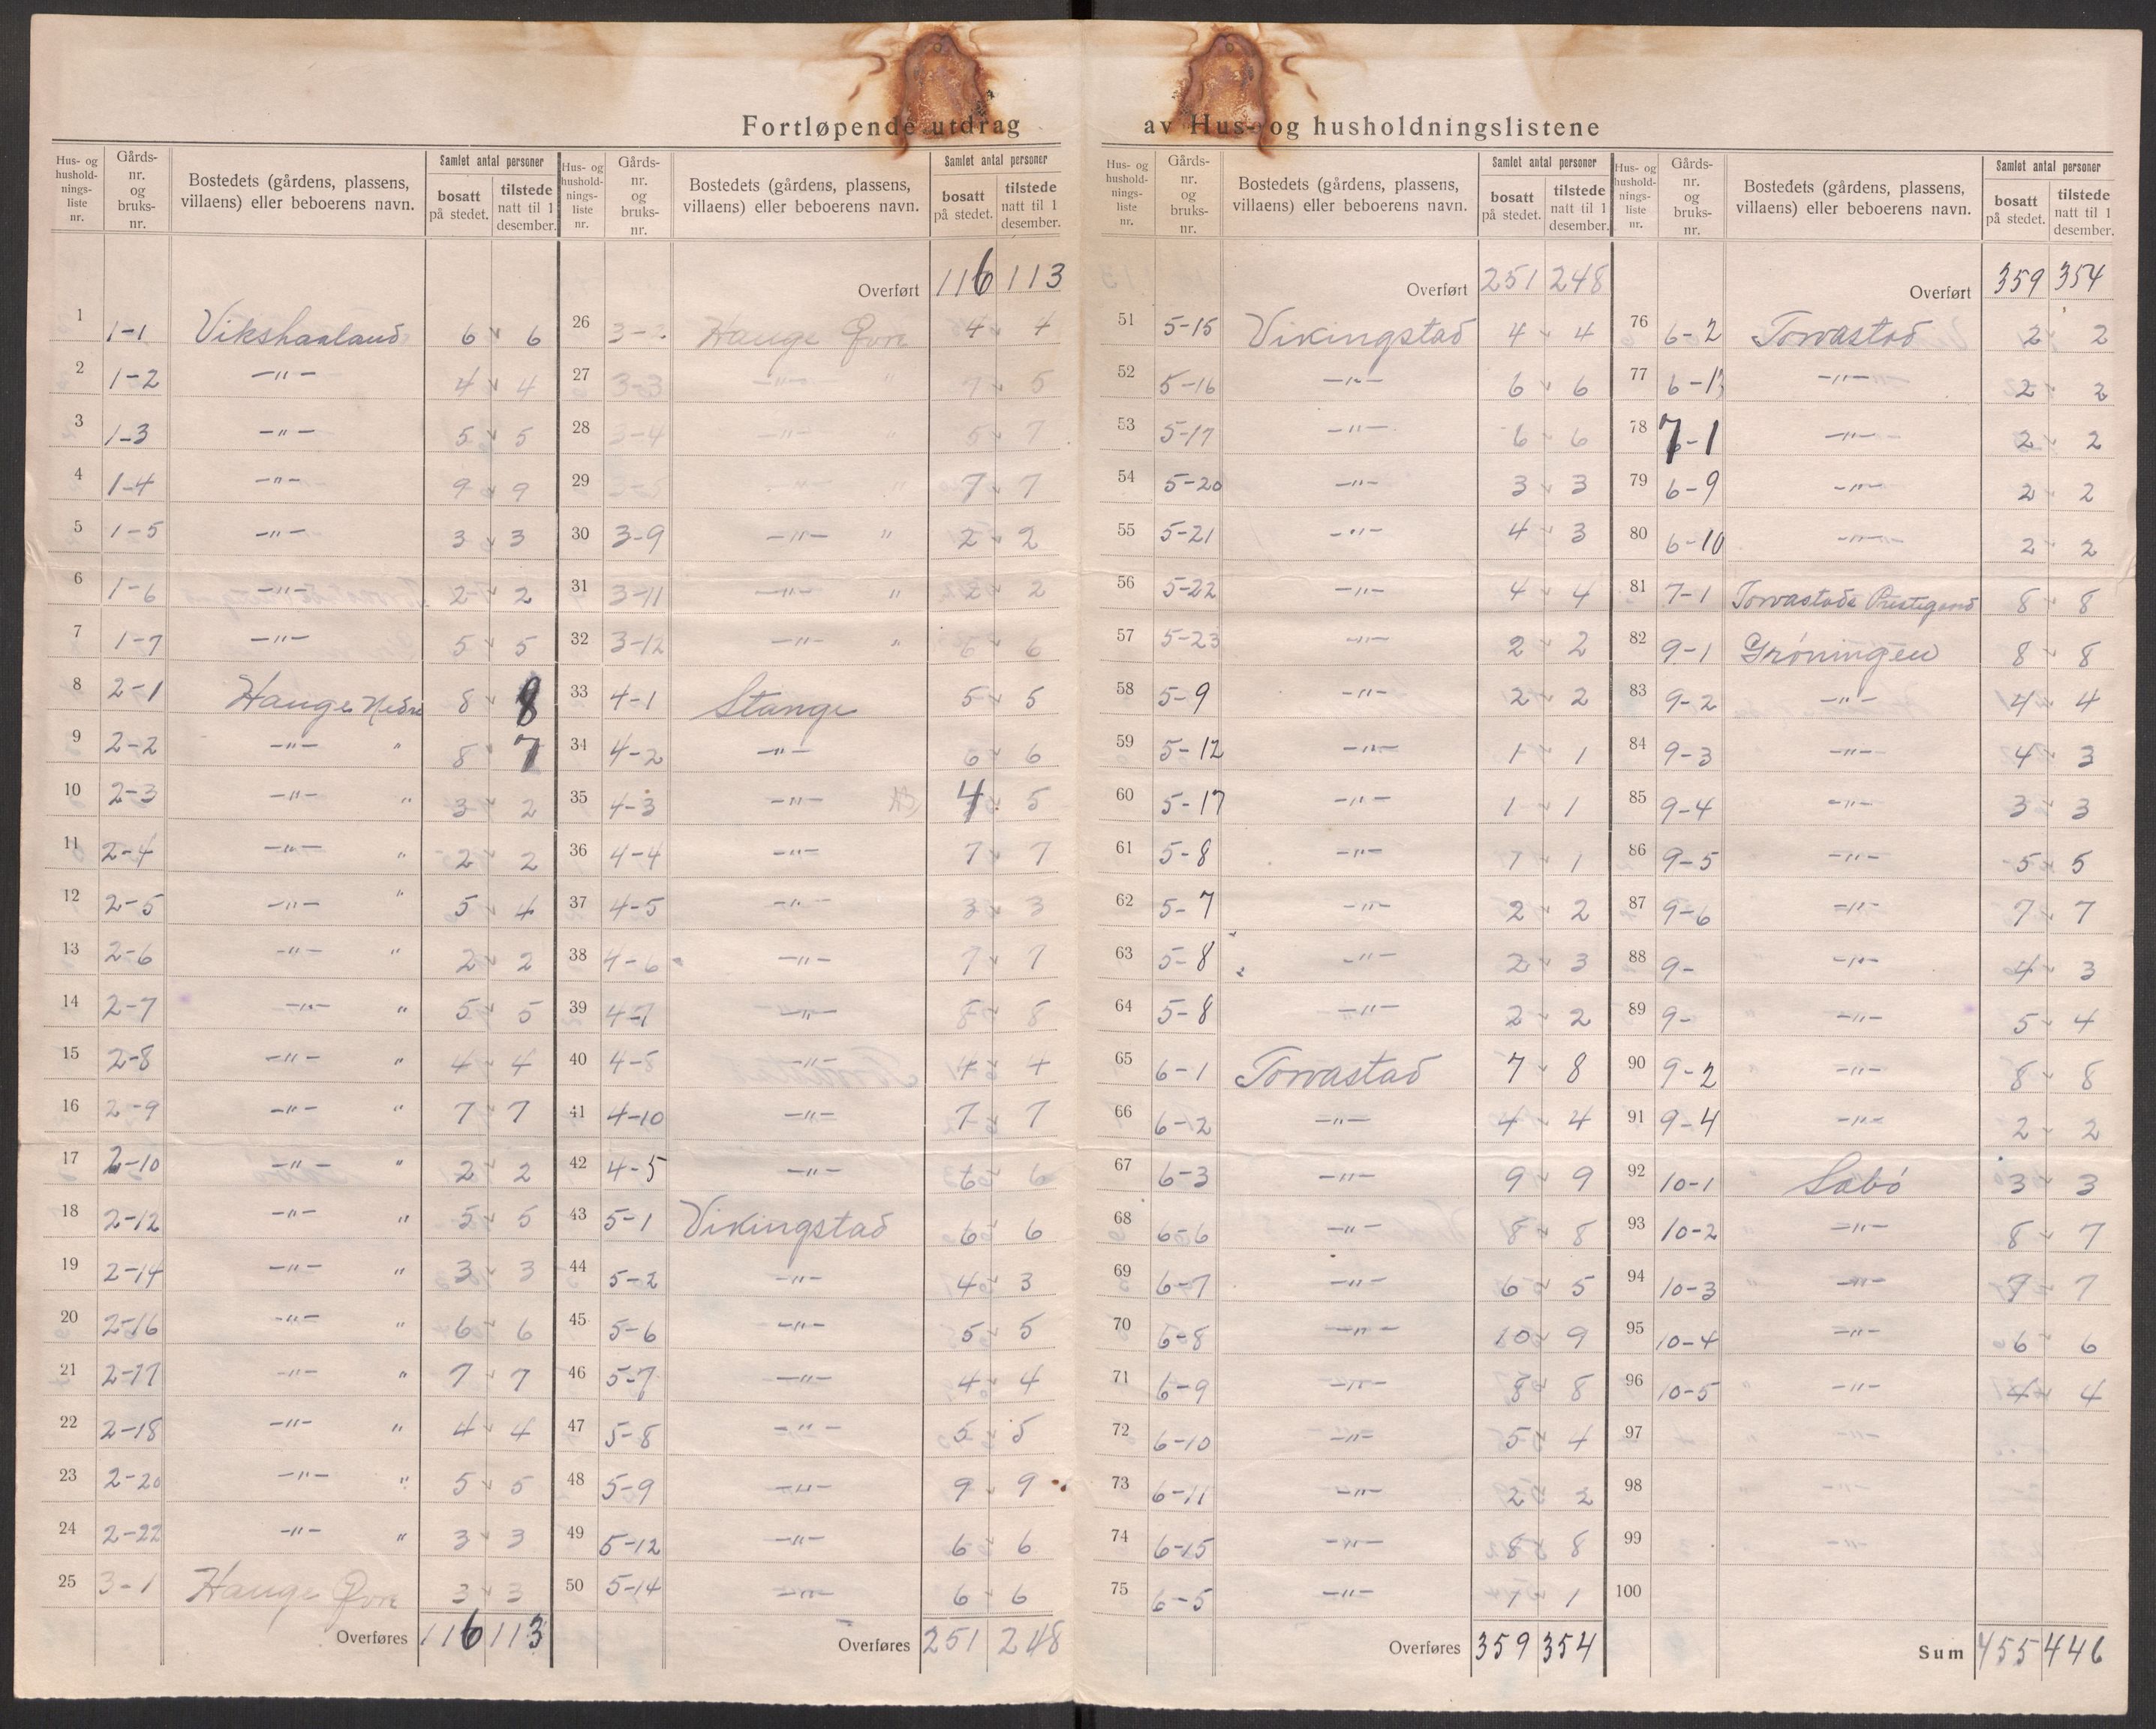 Fortløpende utdrag av Hus- og husholdningslistene
Hus- og husholdnings-liste nr. | Gårds-nr. og bruks-nr. | Bostedets (gårdens, plassens, villaens) eller beboerens navn. | Samlet antal personer | bosatt på stedet. | tilstede natt til 1 desember.
1 1-1 Vikshaaland 6 6
2 1-2 —"— 4 4
3 1-3 —"— 5 5
4 1-4 —"— 9 9
5 1-5 —"— 3 3
6 1-6 —"— 2 2
7 1-7 —"— 5 5
8 2-1 Hauge Nedre 8 8
9 2-2 —"— " 8 7
10 2-3 —"— " 3 2
11 2-4 —"— " 2 2
12 2-5 —"— " 5 4
13 2-6 —"— " 2 2
14 2-7 —"— " 5 5
15 2-8 —"— " 4 4
16 2-9 —"— " 7 7
17 2-10 —"— " 2 2
18 2-12 —"— " 5 5
19 2-14 —"— " 3 3
20 2-16 —"— " 6 6
21 2-17 —"— " 7 7
22 2-18 —"— " 4 4
23 2-20 —"— " 5 5
24 2-22 —"— " 3 3
25 3-1 Hauge Øvre 3 3
Overføres 116 113
Hus- og husholdnings-liste nr. | Gårds-nr. og bruks-nr. | Bostedets (gårdens, plassens, villaens) eller beboerens navn. | Samlet antal personer | bosatt på stedet. | tilstede natt til 1 desember.
Overført 116 113
26 Hauge Øvre 4 4
27 3-3 —"— " 7 5
28 3-4 —"— " 5 7
29 3-5 —"— " 7 7
30 3-9 —"— " 2 2
31 3-11 —"— " 2 2
32 3-12 —"— " 6 6
33 4-1 Stange 5 5
34 4-2 —"— 6 6
35 4-3 —"— 4 5
36 4-4 —"— 7 7
37 4-5 —"— 3 3
38 4-6 —"— 7 7
39 4-7 —"— 8 8
40 4-8 —"— 4 4
41 4-10 —"— 7 7
42 4-5 —"— 6 6
43 5-1 Vikingstad 6 6
44 5-2 —"— 4 3
45 5-6 —"— 5 5
46 5-7 —"— 4 4
47 5-8 —"— 5 5
48 5-9 —"— 9 9
49 5-12 —"— 6 6
50 5-14 —"— 6 6
Overføres 251 248
Hus- og husholdnings-liste nr. | Gårds-nr. og bruks-nr. | Bostedets (gårdens, plassens, villaens) eller beboerens navn. | Samlet antal personer | bosatt på stedet. | tilstede natt til 1 desember.
Overført 251 248
51 5-15 Vikingstad 4 4
52 5-16 —"— 6 6
53 5-17 —"— 6 6
54 5-20 —"— 3 3
55 5-21 —"— 4 3
56 5-22 —"— 4 4
57 5-23 —"— 2 2
58 5-9 —"— 2 2
59 5-12 —"— 1 1
60 5-17 —"— 1 1
61 5-8 —"— 1 1
62 5-7 —"— 2 2
63 5-8 —"— 2 3
64 5-8 —"— 2 2
65 6-1 Torvastad 7 8
66 6-2 —"— 4 4
67 6-3 —"— 9 9
68 6-6 —"— 8 8
69 6-7 —"— 6 5
70 6-8 —"— 10 9
71 6-9 —"— 8 8
72 6-10 —"— 5 4
73 6-11 —"— 2 2
74 6-15 —"— 8 8
75 6-5 —"— 1 1
Overføres 359 354
Hus- og husholdnings-liste nr. | Gårds-nr. og bruks-nr. | Bostedets (gårdens, plassens, villaens) eller beboerens navn. | Samlet antal personer | bosatt på stedet. | tilstede natt til 1 desember.
Overført 359 354
76 6-2 Torvastad 2 2
77 6-13 —"— 2 2
78 7-1 —"— 2 2
79 6-9 —"— 2 2
80 6-10 —"— 2 2
81 7-1 Torvastads Prestegard 8 8
82 9-1 Grøningen 8 8
83 9-2 —"— 4 4
84 9-3 —"— 4 3
85 9-4 —"— 3 3
86 9-5 —"— 5 5
87 9-6 —"— 7 7
88 9- —"— 4 3
89 9- —"— 5 4
90 9-2 —"— 8 8
91 9-4 —"— 2 2
92 10-1 Sabó 3 3
93 10-2 —"— 8 7
94 10-3 —"— 7 7
95 10-4 —"— 6 6
96 10-5 —"— 4 4
97
98
99
100
Sum 455 446